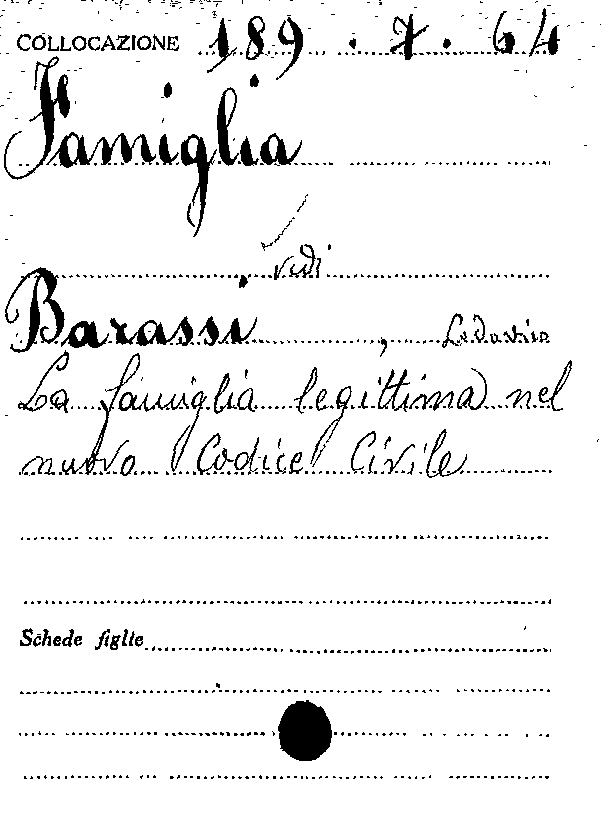 COLLOCAZIONE 189.7.64
Famiglia
vedi
Barassi, Lodovico
La famiglia legittima nel
nuovo Codice Civile
Schede figlie